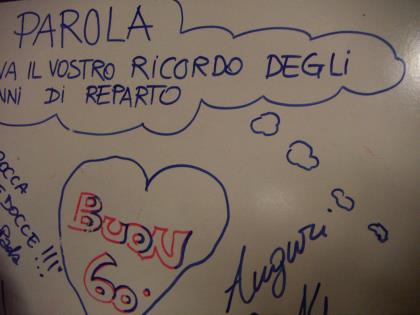 PAROLA
VA IL VOSTRO RICORDO DEGLI
NNI DI REPARTO
OCCA
E DOCCE!!!
Paola
BUON
60°
Auguri